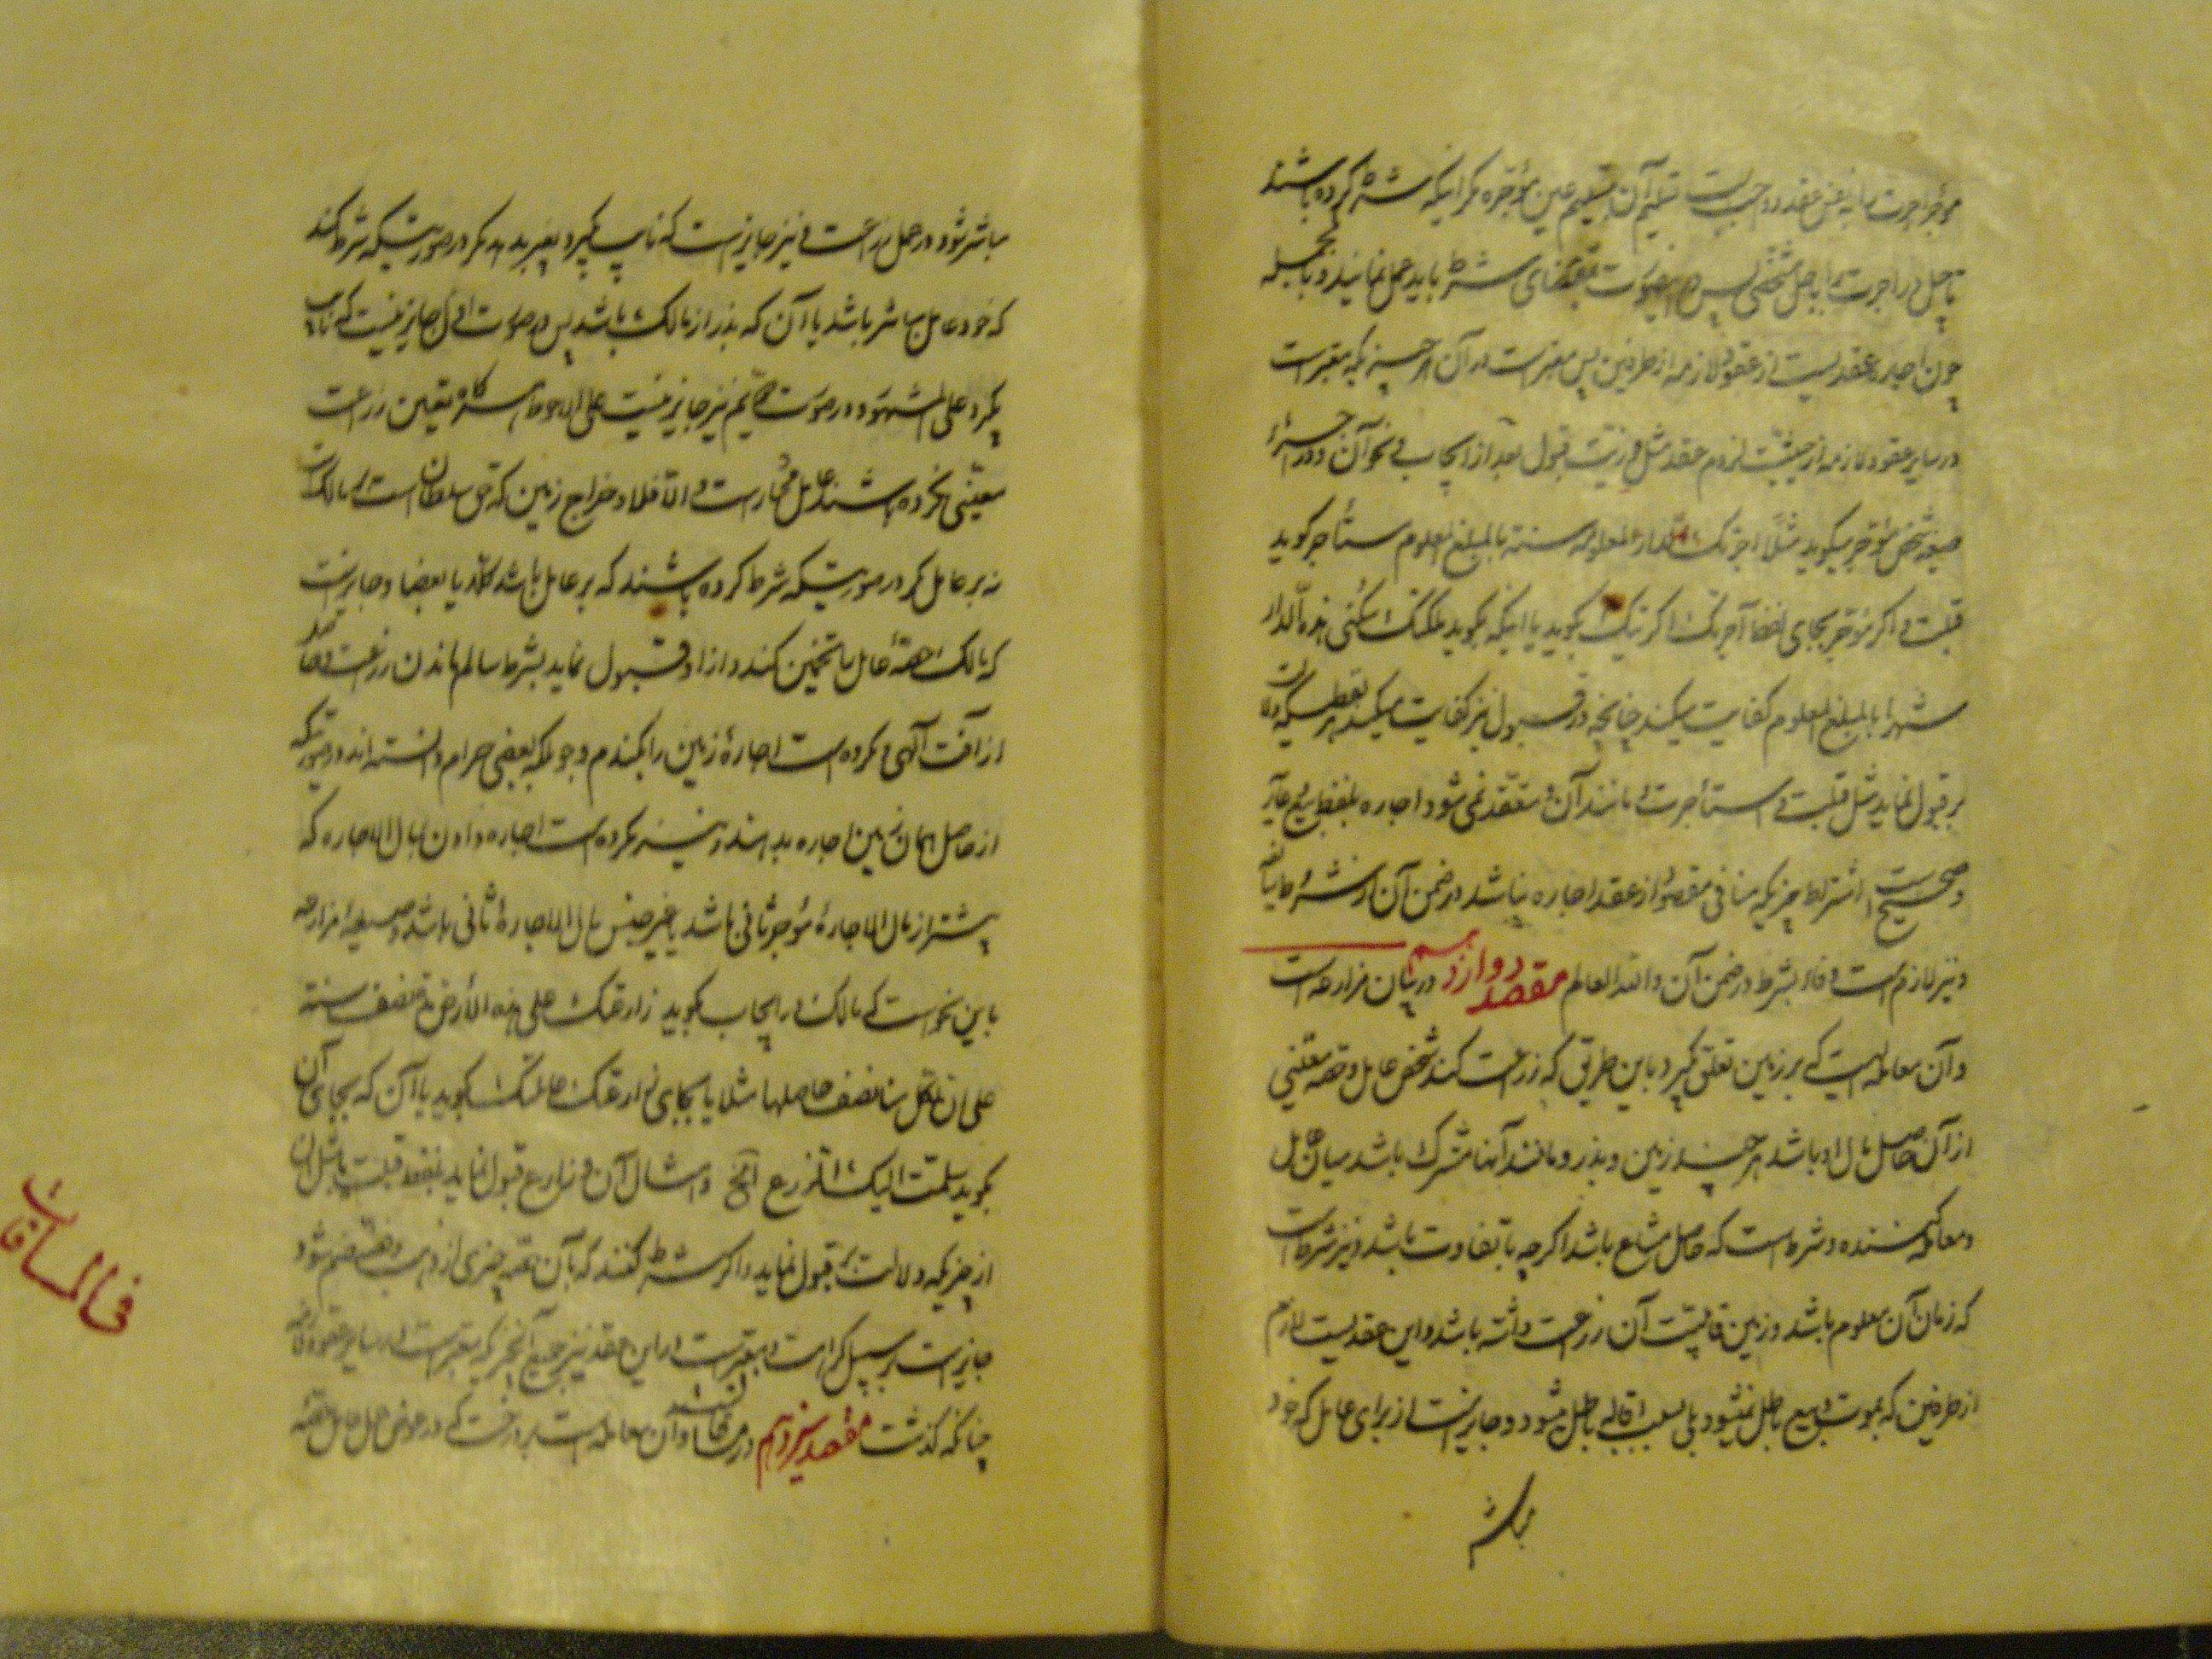 موجر اجرت را به نفس عقد و واجب است تسلیم آن بتسلیم عین موجره مگر اینکه شرط کرده باشند
تاجیل در اجرت را باجل مشخصی پس در اینصورت بمقتضای شرط باید عمل نمایند و بالجمله
چون اجاره عقدیست از عقود لازمه از طرفین پس معتبر است در آن هر چیزیکه معتبر است
در سایر عقود لازمه از حیثیت لزوم عقد مثل فوریت قبول بعد از ایجاب و نحو آن و در اجرای
صیغه شخص موجر میگوید مثلا اجرتک الدار المعلومه سنته بالمبلغ المعلوم مستأجر گوید
قبلت و اگر موجر بجای لفظ آجرتک اکریتک بگوید یا اینکه بگوید ملکتک سکنی هذه الدار
شهرا بالمبلغ المعلوم کفایت میکند چنانچه در قبول نیز کفایت میکند هر لفظیکه دلالت
بر قبول نماید مثل قبلت و استأجرت و مانند آن و منعقد نمی شود اجاره بلفظ بیع و عاریه
و صحیح است اشتراط چیزیکه منافی مقصود از عقد اجاره نباشد در ضمن آن از شروط سایغه
و نیز لازم است وفاء بشرط در ضمن آن والله العالم مقصد دوازدهم در بیان مزارعه است
و آن معامله ایست که بر زمین تعلق گیرد باین طریق که زراعت کند شخص عامل و حصه معینی
از آن حاصل مال او باشد هر چند زمین و بذر و مانند آنها مشترک باشد میان عامل
و معامله کننده و شرط است که حاصل مشاع باشد اگر چه با تفاوت باشد و نیز شرط است
که زمان آن معلوم باشد و زمین قابلیت آن زراعت داشته باشد و این عقدیست لازم
از طرفین که بموت و بیع باطل نمیشود بلی بسبب اقاله باطل میشود و جایز است از برای عامل که خود
مباشر
مباشر شود در عمل زراعت و نیز جایز است که نایب گیرد بغیر بدهد مگر در صورتیکه شرط کند
که خود عامل مباشر باشد یا آن که بذر از مالک باشد پس در صورت اول جایز نیست که نایب
بگیرد علی المشهور و در صورت دویم نیز جایز نیست علی الاحوط و هر گاه تعیین زراعت
معینی نکرده باشند عامل مختار است و الا فلا و خراج زمین که حق سلطان است بر مالک است
نه بر عامل مگر در صورتیکه شرط کرده باشند که بر عامل باشد کلا یا بعضا و جایز است
که مالک حصه عامل را تخمین کند و از او قبول نماید بشرط سالم ماندن زراعت و حاصل
از آفت الهی و مکروه است اجاره زمین را بگندم و جو بلکه بعضی حرام دانسته اند در صورتیکه
از حاصل همان زمین اجاره بدهند و نیز مکروه است اجاره دادن بمال الاجاره که
بیشتر از مال الاجاره موجر ثانی باشد یا غیر جنس مال الاجاره ثانی باشد و صیغه مزارعه
باین نحو است که مالک در ایجاب گوید زارعتک علی هذه الأرض مده نصف سنته
علی ان لکل منا نصف حاصلها مثلا یا بجای زارعتک عاملتک بگوید یا آن که بجای آن
بگوید سلمت الیک لتزرع الخ و امثال آن و زارع قبول نماید بلفظ قبلت یا مثل آن
از چیزیکه دلالت بر قبول نماید و اگر شرط کنند که بآن حصه چیزی از ذهب و فضه ضم شود
جایز است بر سبیل کراهت و معتبر است در این عقد نیز جمیع آنچیزیکه معتبر است در سایر عقود لازمه
چنانکه گذشت مقصد سیزدهم در مساقات است و آن معامله است بر درخت که در عوض عمل عامل حصه
فی المساقات